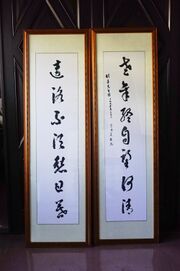 老年終自望河清
遠路不須愁日暮